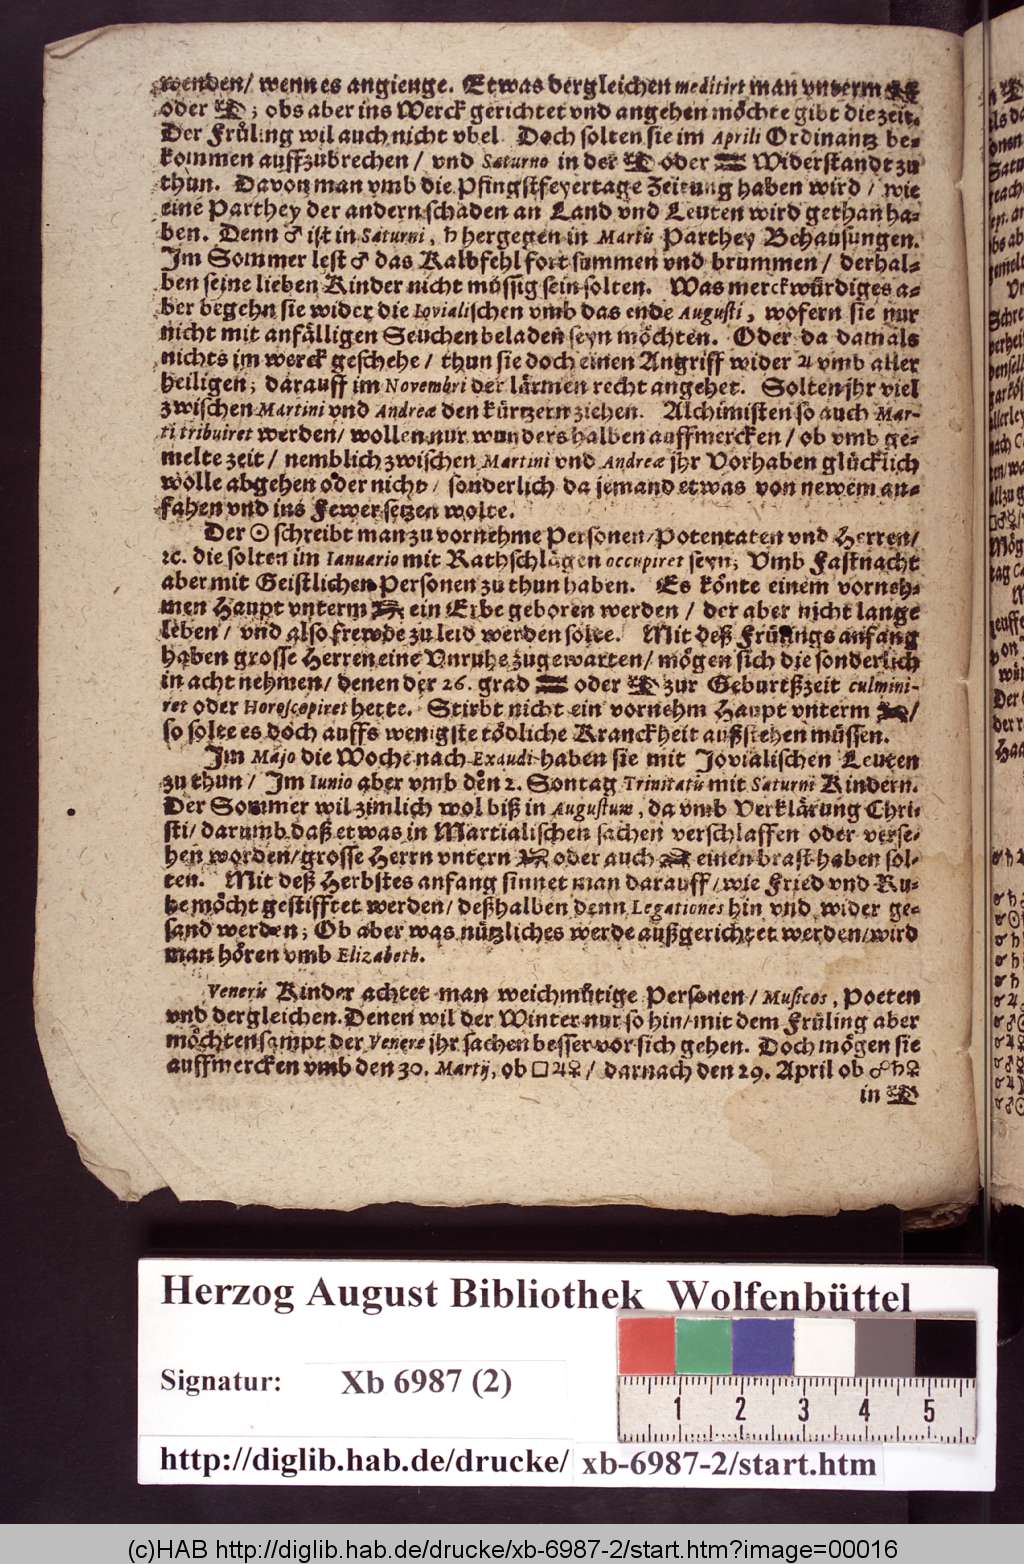 wenden/ wenn es angienge. Etwas dergleichen meditirt man vnterm
oder ; obs aber ins Werck gerichtet vnd angehen möchte gibt die zeit.
Der Früling wil auch nicht vbel. Doch solten sie im Aprili Ordinantz be-
kommen auffzubrechen/ vnd Saturno in der oder ♒ Widerstandt zu
thun. Davon man vmb die Pfingstfeyertage Zeitung haben wird/ wie
eine Parthey der andern schaden an Land vnd Leuten wird gethan ha-
ben. Denn ♂ ist in Saturni, ♄ hergegen in Martis Parthey Behausungen.
Im Sommer lest ♂ das Kalbfehl fort summen vnd brummen/ derhal-
ben seine lieben Kinder nicht müssig sein solten. Was merckwürdiges a-
ber begehn sie wider die Iovialischen vmb das ende Augusti, wofern sie nur
nicht mit anfälligen Seuchen beladen seyn möchten. Oder da damals
nichts im werck geschehe/ thun sie doch einen Angriff wider ♃ vmb aller
heiligen; darauff im Novembri der lärmen recht angehet. Solten jhr viel
zwischen Martini vnd Andreæ den kürtzern ziehen. Alchimisten so auch Mar-
ti tribuiret werden/ wollen nur wunders halben auffmercken/ ob vmb ge-
melte zeit/ nemblich zwischen Martini vnd Andreæ jhr Vorhaben glücklich
wolle abgehen oder nicht/ sonderlich da jemand etwas von newem an-
fahen vnd ins Fewer setzen wolte.
Der ☉ schreibt man zu vornehme Personen/ Potentaten vnd Herren/
ꝛc. die solten im Ianuario mit Rathschlägen occupiret seyn; Vmb Fastnacht
aber mit Geistlichen Personen zu thun haben. Es könte einem vorneh-
men Haupt vnterm ein Erbe geboren werden/ der aber nicht lange
leben/ vnd also frewde zu leid werden solte. Mit deß Frülings anfang
haben grosse Herren eine Vnruhe zugewarten/ mögen sich die sonderlich
in acht nehmen/ denen der 26. grad ♒ oder zur Geburtßzeit culmini-
ret oder Horoscopiret hette. Stirbt nicht ein vornehm Haupt vnterm /
so solte es doch auffs wenigste tödliche Kranckheit außstehen müssen.
Im Majo die Woche nach Exaudi haben sie mit Jovialischen Leuten
zu thun/ Im Iunio aber vmb den 2. Sontag Trinitatis mit Saturni Kindern.
Der Sommer wil zimlich wol biß in Augustum, da vmb Verklärung Chri-
sti/ darumb daß etwas in Martialischen sachen verschlaffen oder verse-
hen worden/ grosse Herrn vntern oder auch einen brast haben sol-
ten. Mit deß Herbstes anfang sinnet man darauff/ wie Fried vnd Ru-
he möcht gestifftet werden/ deßhalben denn Legationes hin vnd wider ge-
sand werden; Ob aber was nützliches werde außgerichtet werden/ wird
man hören vmb Elizabeth.
Veneris Kinder achtet man weichmütige Personen/ Musicos, Poeten
vnd dergleichen. Denen wil der Winter nur so hin/ mit dem Früling aber
möchten sampt der Venere jhr sachen besser vor sich gehen. Doch mögen sie
auffmercken vmb den 30. Martij, ob □♃♀/ darnach den 29. April ob ☍♄♀
in
Herzog August Bibliothek Wolfenbüttel
Signatur: Xb 6987 (2)
1 2 3 4 5
http://diglib.hab.de/drucke/ xb-6987-2/start.htm
(c)HAB http://diglib.hab.de/drucke/xb-6987-2/start.htm?image=00016